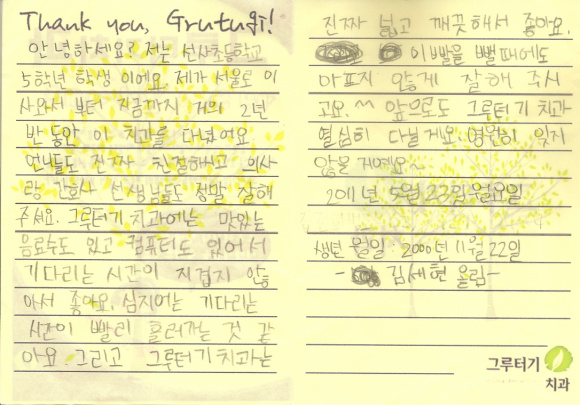 Thank you, Grutugi!
안녕하세요? 저는 선사초등학교
5학년 학생이에요. 제가 서울로 이
사와서 부터 지금까지 거의 2년
반 동안 이 치과를 다녔어요.
언니들도 진짜 친절하시고 의사
랑 간호사 선생님들도 정말 잘해
주셔요. 그루터기 치과에는 맛있는
음료수도 있고 컴퓨터도 있어서
기다리는 시간이 지겹지 않
아서 좋아요. 심지어는 기다리는
시간이 빨리 흘러가는 것 같
아요. 그리고 그루터기치과는
진짜 넓고 깨끗해서 좋아요.
이빨을 뺄 때에도
아프지 않게 잘해 주시
고요. ^^ 앞으로도 그루터기 치과
열심히 다닐게요. 영원히 잊지
않을 거예요~
2011년 5월 23일 월요일
생년월일 : 2000년 11월 22일
- 김세현 올림 -
그루터기
치과